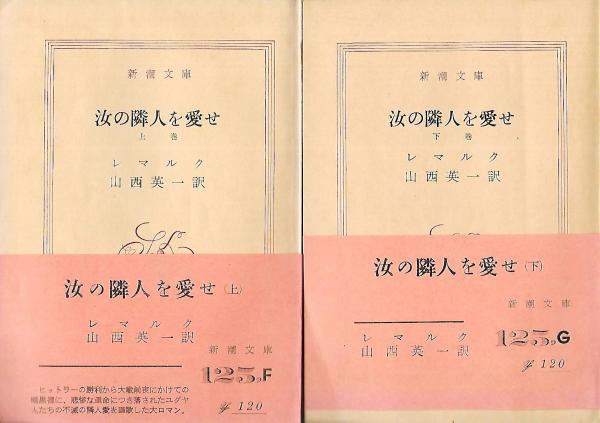 新潮文庫
汝の隣人を愛せ
上巻
レマルク
山西英一訳
汝の隣人を愛せ(上)
レマルク
山西英一訳
新潮文庫
125F
ヒットラーの勝利から大戦前夜にかけての
暗黒裡に、悲惨な運命につき落されたユダヤ
人たちの不滅の隣人愛を謳歌した大ロマン。
¥120
新潮文庫
汝の隣人を愛せ
下巻
レマルク
山西英一訳
汝の隣人を愛せ(下)
新潮文庫
レマルク
山西英一訳
125G
¥120